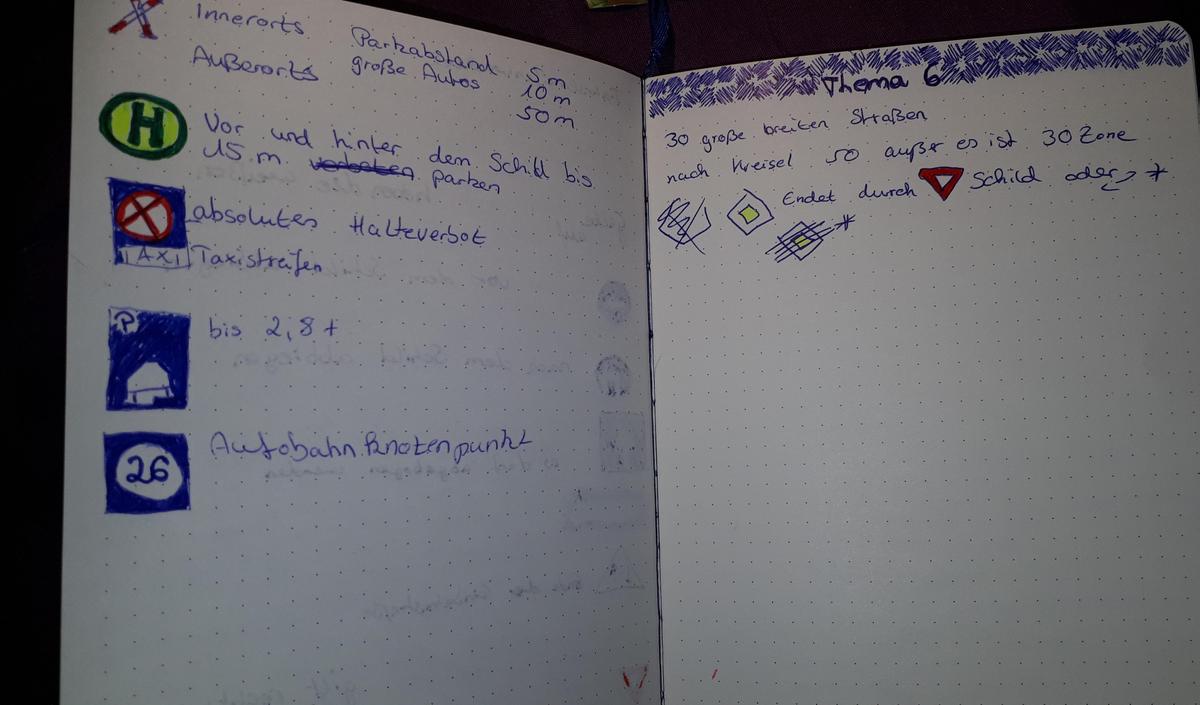 Innerorts Parkabstand 5m
große Autos 10m
Außerorts 50m
H Vor und hinter dem Schild bis
15 m. verboten parken
absolutes Halteverbot
TAXI Taxistreifen
P bis 2,8t
26 Autobahnknotenpunkt
Thema 6
30 große breiten Straßen
nach Kreisel 50 außer es ist 30 Zone
Endet durch Schild oder *
*